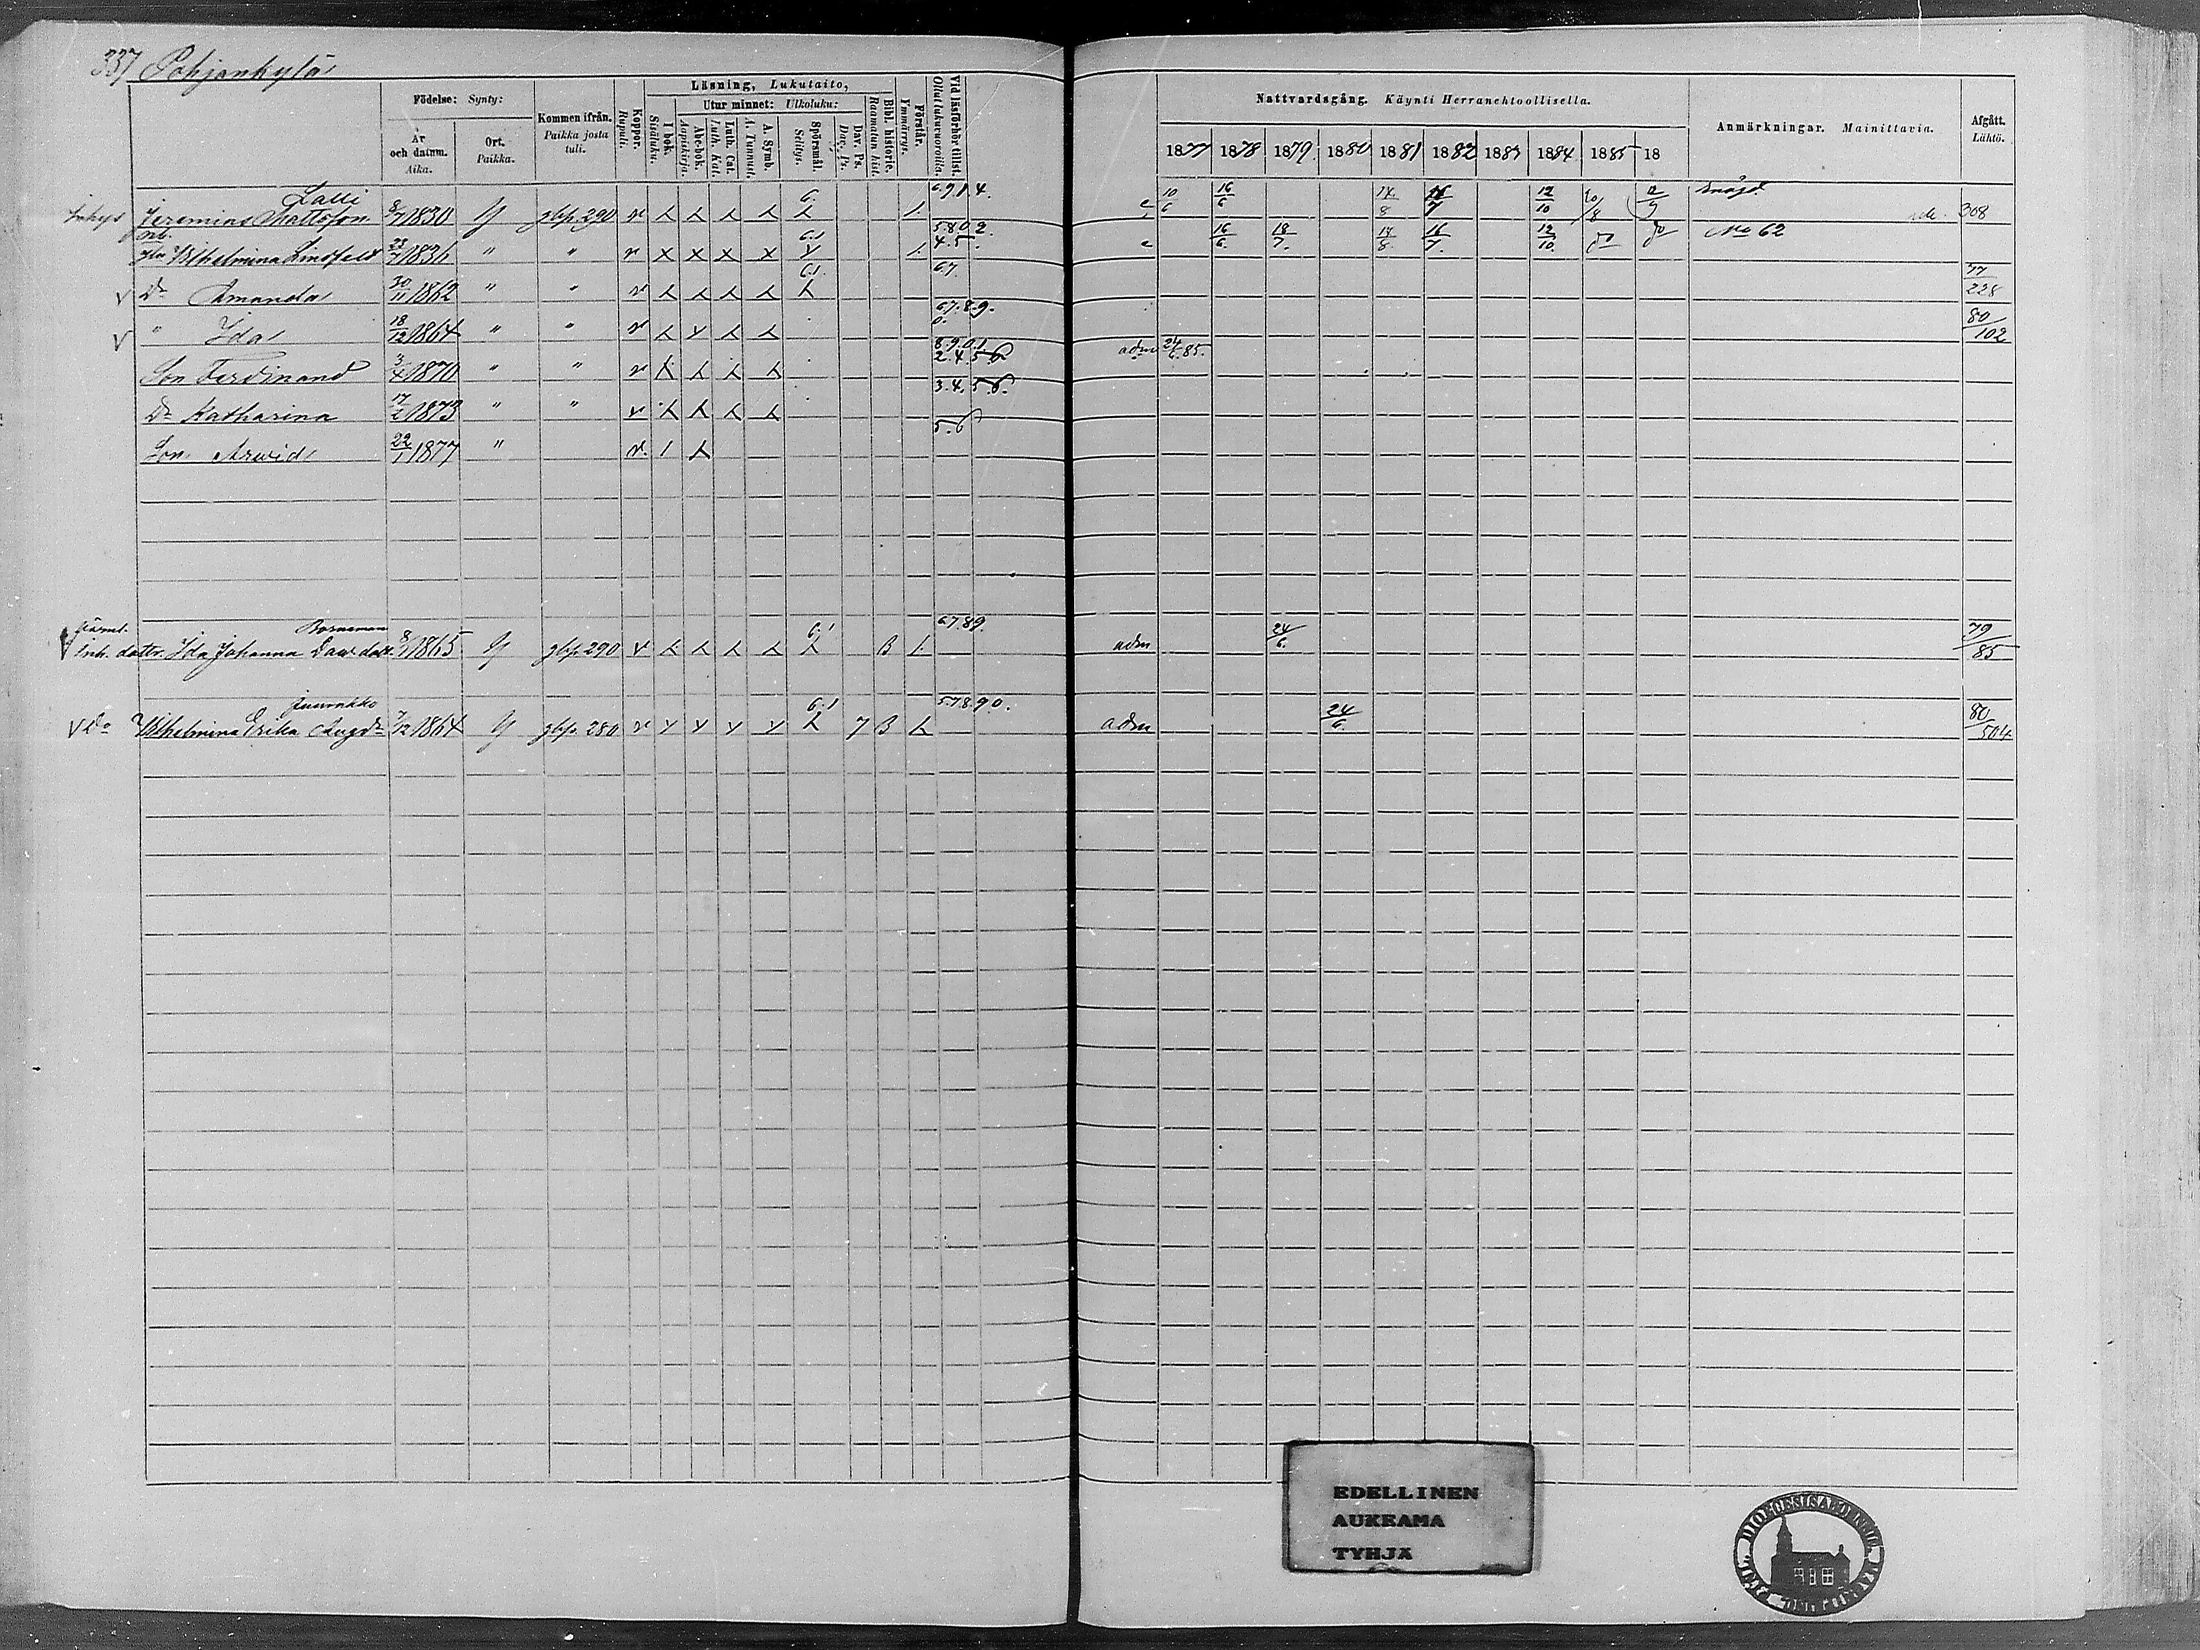 337 Pohjankylä
Födelse: Synty:
År och datum. Aika.
Ort. Paikka.
Kommen ifrån. Paikka josta tuli.
Koppor. Rupuli.
Läsning, Lukutaito,
I bok. Sisäluku.
Utur minnet: Ulkoluku:
Abc-bok. Aapiskirja.
Luth. Cat. Luth. Kat.
A. Symb. A. Tunnust.
Spörsmål. Selitys.
Dav. Ps. Dav. Ps.
Bibl. historie. Raamatun hist.
Förstår. Ymmärrys.
Vid läsförhör tillst. Ollut lukuvuoroilla.
Nattvardsgång. Käynti Herranehtoollisella.
1877 1878 1879 1880 1881 1882 1883 1884 1885 18
Anmärkningar. Mainittavia.
Afgått. Lähtö.
Lalli
Inhys Jeremias Mattsson 8/7 1830 gbp. 290 6. 6.9.1.4. 10/6 16/6 14/8 16/7 12/10 308
Wilhelmina Lindfelt 23/7 1836 " " 6.1 5.8.0.2. 4.5. 16/6. 18/7. 14/8. 16/7. 12/10. No 62
Dr Amanda 30/11 1862 " " 6.1. 6.7. 77/228
" Ida 18/12 1864 " " 6.7.8.9. 0. 80/102
Son Ferdinand 3/4 1870 " " 8.9.0.1 2.4.5.6 adm 24/6.85.
Dr Katharina 17/2 1873 " " 3.4.5.6.
Son Arwid 22/1 1877 " 5.6
inh. dotter Ida Johanna 1865 gbp 290 6.1 B 6.7.8.9. adm 24/6. 79/85
Do Wilhelmina Erika Augdr 7/12 1864 gbp. 280 6.1 7 B 5.7.8.9.0. adm 24/6. 80/504
EDELLINEN
AUKEAMA
TYHJÄ